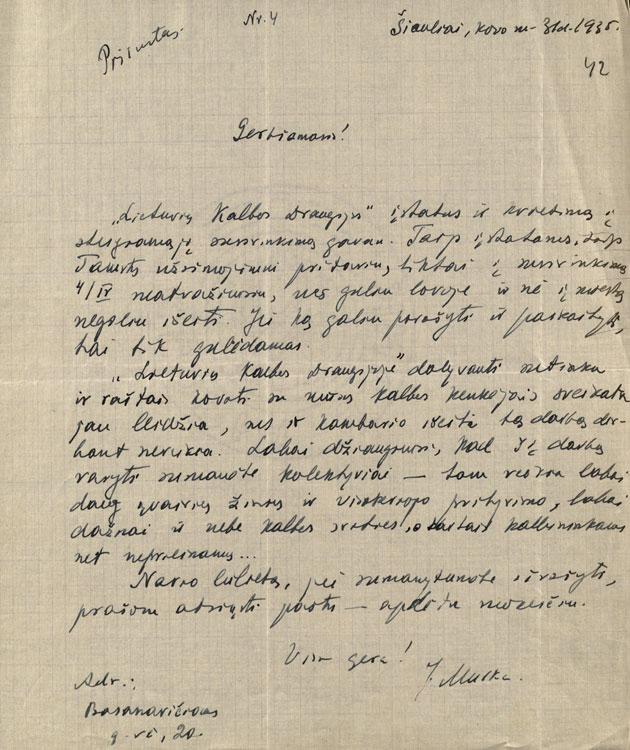 Nr. 4
Šiauliai, kovo m. 31 d. 1935.
Prisiųstas
42
Gerbiamasis!
„Lietuvių Kalbos Draugijos" įstatus ir kvietimą į
steigiamąjį susirinkimą gavau. Taip įstatams, taip
Tamstų užsimojimui pritariu, tiktai į susirinkimą
4/IV neatvažiuosiu, nes guliu lovoje ir nė į miestą
negaliu išeiti. Jei ką galiu parašyti ir paskaityti,
tai tik gulėdamas.
„Lietuvių Kalbos Draugijoje" dalyvauti sutinku
ir raštais kovoti su mūsų kalbos kenkėjais sveikata
jau leidžia, nes iš kambario išeiti tą darbą dir-
bant nereikia. Labai džiaugiuosi, kad šį darbą
varyti sumanote kolektyviai — tam reikia labai
daug įvairių žinių ir visokeriopo prityrimo, labai
dažnai ir nebe kalbos srities, o kartais kalbininkams
net neprieinamų...
Nario bilietą, jei sumanytumėte išrašyti,
prašom atsiųsti paštu — apdėtu mokesčiu.
Viso gero!
J. Murka.
Adr.:
Basanavičiaus
g-vė, 20.